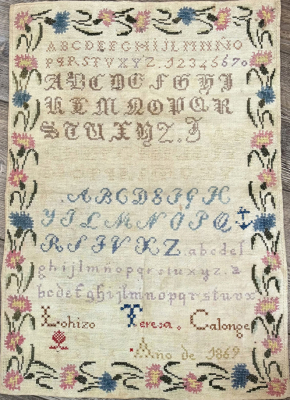 ABCDEFGHIJLMNNO
PQRSTVXYZ. 1234567o
ABCDEFGHI
KLMNOPQR
STUXYZ.
ABCDEFGH
YJLMNOPQ
RSTVXZ.abcdef
ghijlmnopqrstuxyz.a
bcdefghijlmnopqrstuvx
Lohizo Teresa. Calonge
Año de 1869